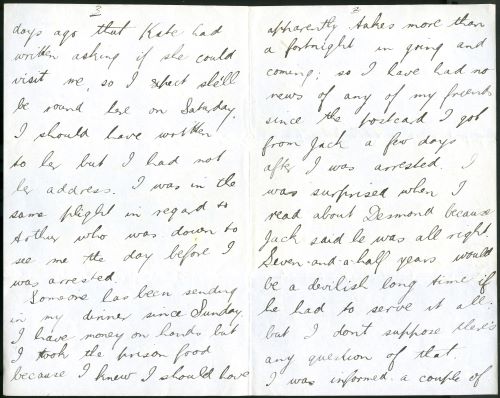 2
apparently takes more than
a fortnight in going and
coming; so I have had no
news of any of my friends
since the postcad I got
from Jack a few days
after I was arrested. I
was surprised when I
read about Desmond because
Jack said he was all right
Seven-and-a-half years would
be a devilish long time if
he had to serve it all:
but I don't suppose there's
any question of that.
I was informed a couple of
3
days ago that Kate had
written asking if she could
visit me, so I expect she'll
be round here on Saturday.
I should have written
to her but I had not
her address. I was in the
same plight in regard to
Arthur who was down to
see me the day before I
was arrested.
Someone has been sending
in my dinner since Sunday.
I have money on hands but
I took the prison food
because I knew I should have